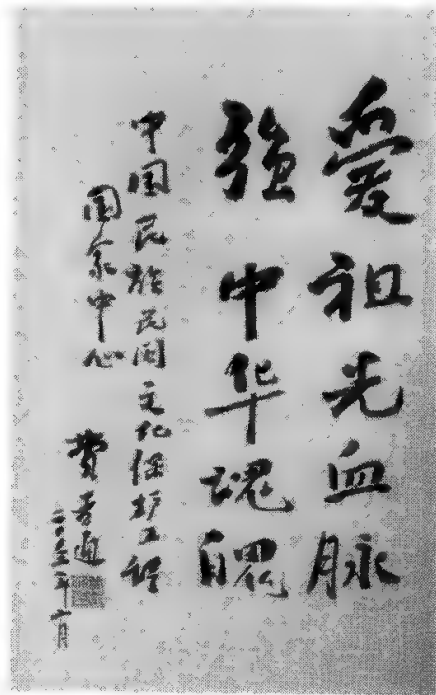 愛祖先血脉
強中华魂魄
中国民族民间文化保护工程
国家中心
費孝通
二〇〇三年十月